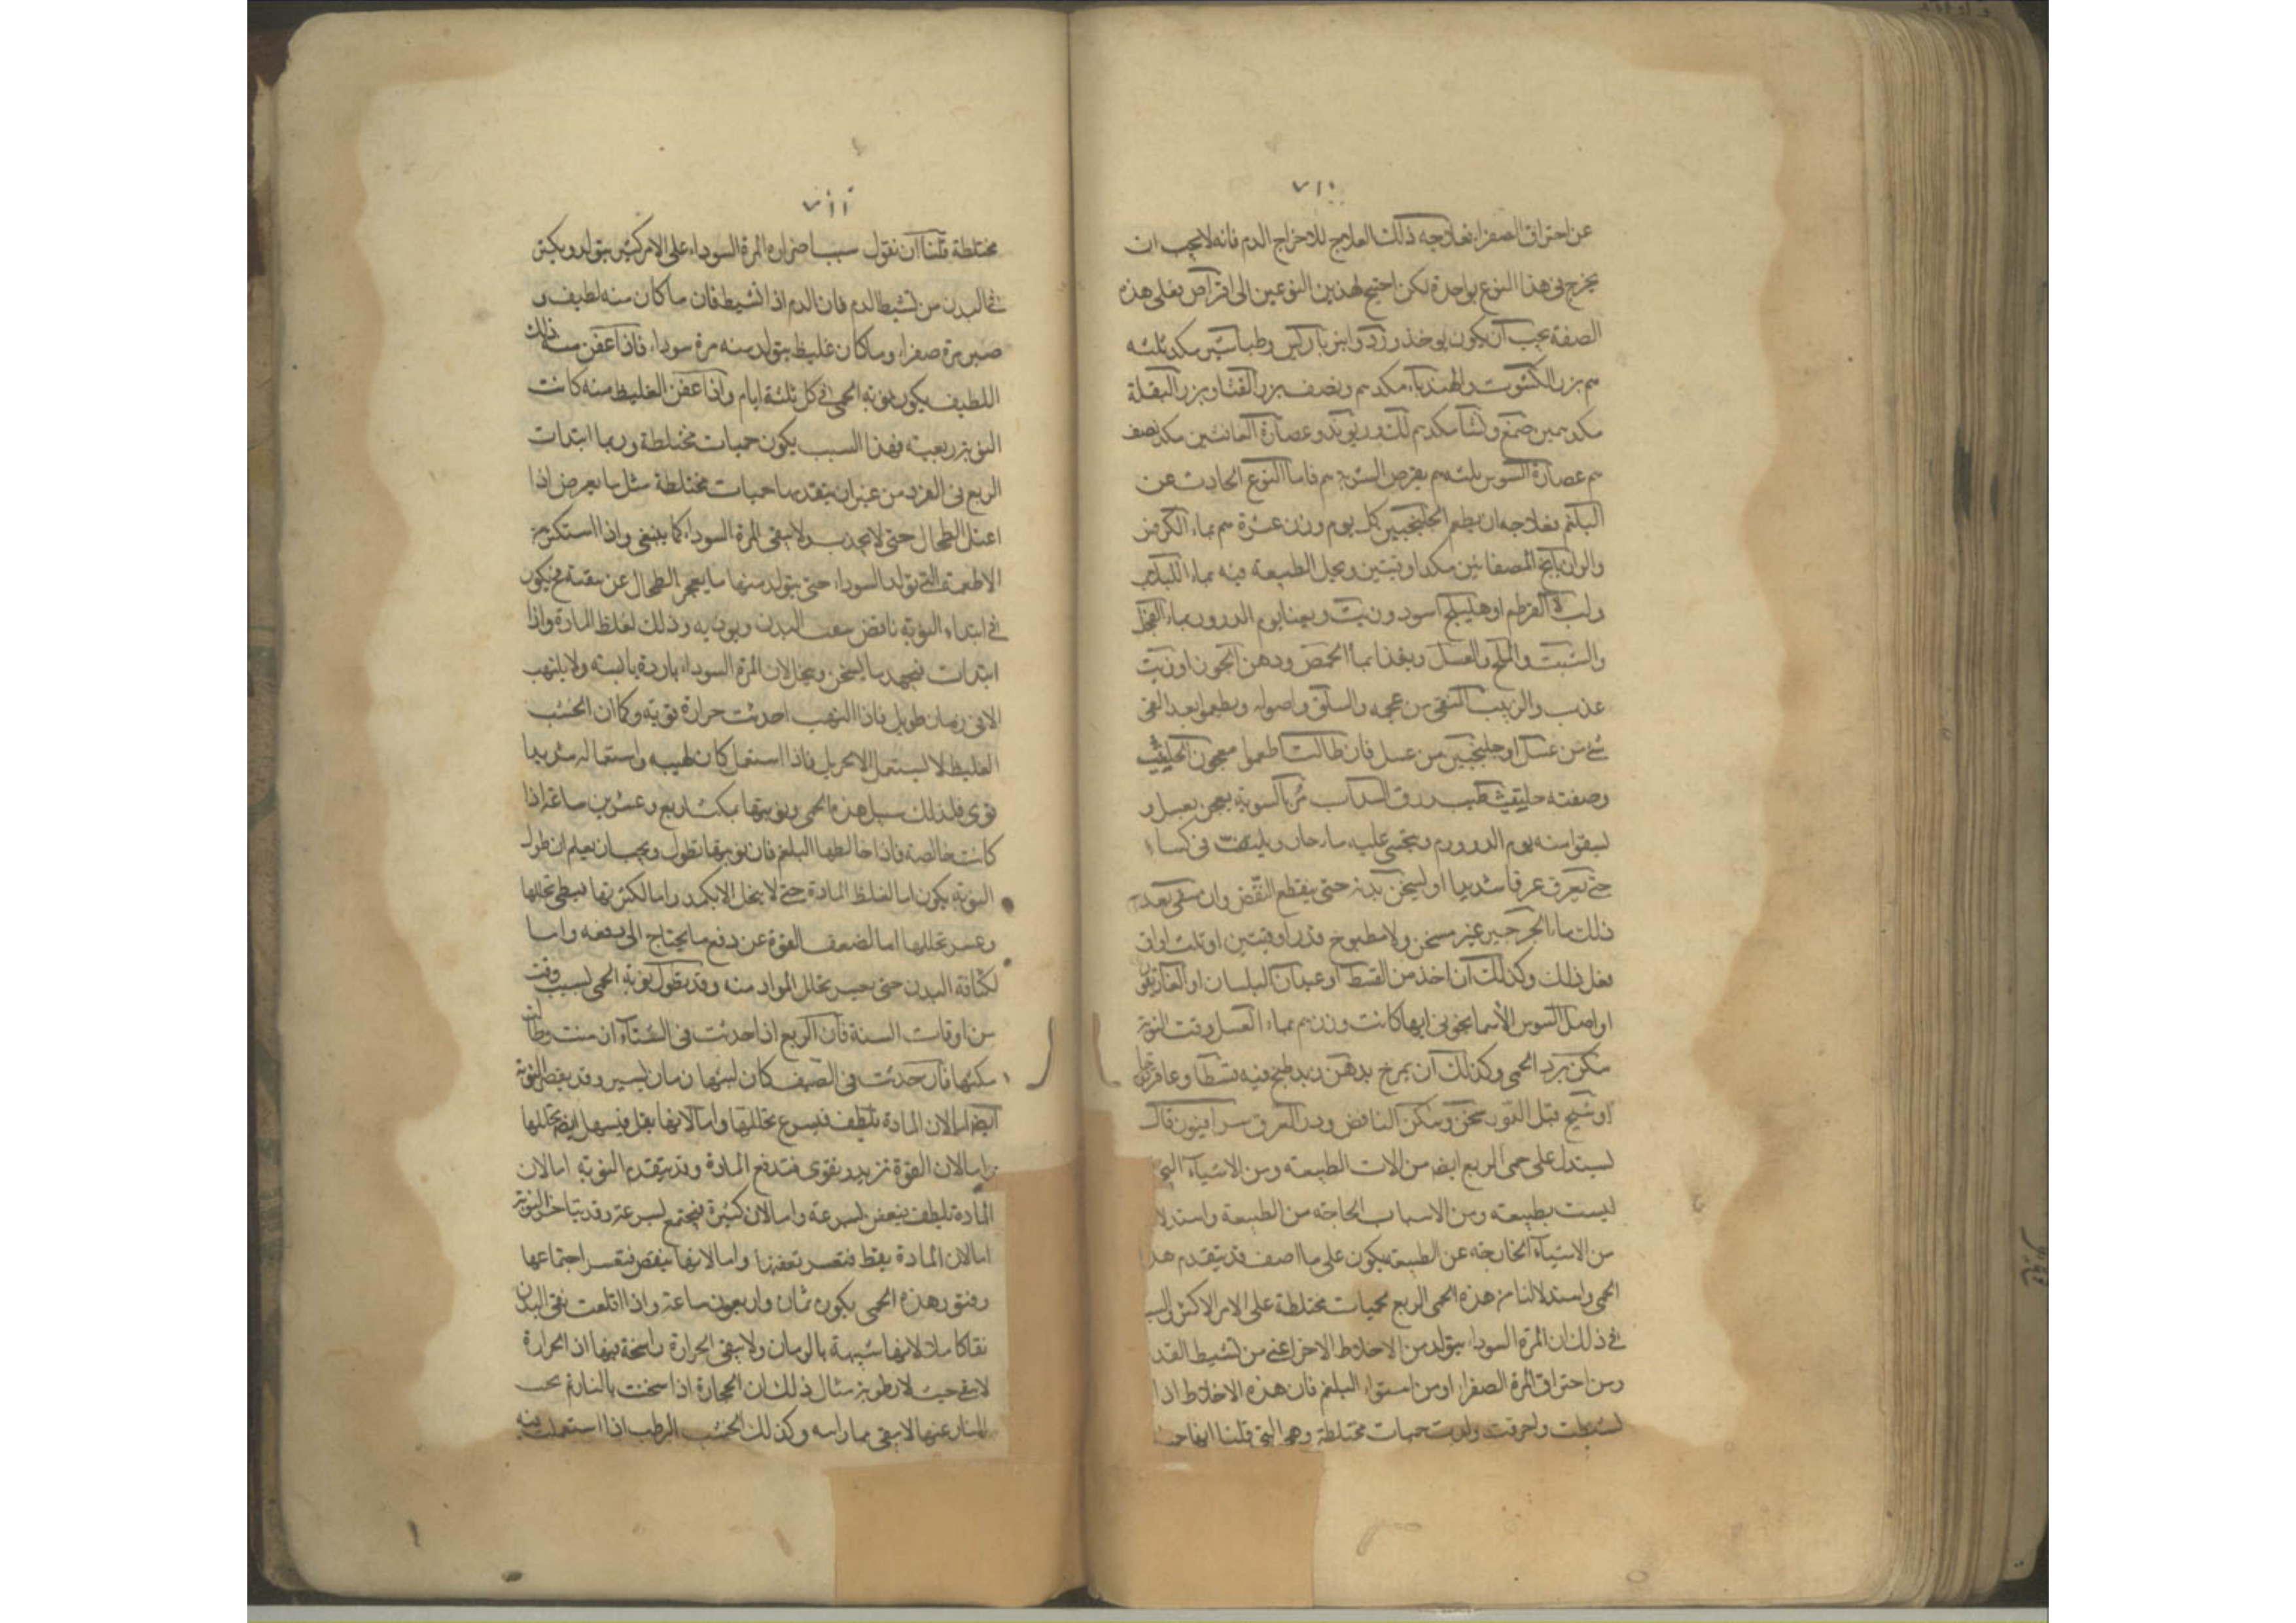 ٧١٠
عن احتراق الصفراء فعلاجه ذلك العلاج للاخراج الدم فانه لا يجب ان
يخرج في هذا النوع بواحدة لكن احتيج لهذين النوعين الى اقراص تعلى هذه
الصفة يجب ان يكون يوخذ ورد وانبرباريس وطباشير مكد ثلثه
سم بزر الكشوت والهندباء مكد سم ونصف بزر القثا وبزر البقلة
مكد سمين صمغ ونشا مكد سم لك وريوند وعصارة الغافتين مكد نصف
سم عصارة السوس ثلثه سم يقرص الشربة سم فاما النوع الحادث عن
البلغم فعلاجه ان يطعم الجلنجبين كل يوم وزن عشرة سم بماء الكرفس
والرازيانج المصفا ئين مكد اوقيتين ويحل الطبيعة فيه بماء اللبلاب
ولب القرطم او هليلج اسود وزيت ويقيا يوم الدور بماء الفجل
والشبت والملح والعسل ويغذا بما الحمص ودهن الجوز او زيت
عذب والزبيب المنقى من عجمه والسلق واصوله ويطعموا بعد القى
شئ من عسل او جلنجبين من عسل فان طالت اطعموا معجون الحلتيث
وصفته حلتيث طيب ورق السداب مر بالسوية يعجن بعسل و
يسقوا منه يوم الدور سم ويتحسى عليه ماء حار ويلتف فى كساء
حتى يعرق عرقا شديدا او يسخن بدنه حتى ينقطع النفض وان سقى بعد
ذلك ماء الجرجير غير مسخن ولا مطبوخ قدر اوقيتين او ثلث اواق
فعل ذلك وكذلك ان اخذ من القسط او عيدان البلسان او الغاريقون
او اصل السوس الاسمانجونى ايها كانت وزن سم بماء العسل وقت النوبة
سكن برد الحمى وكذلك ان يمرخ بدهن زيد طبخ فيه قسطا وعاقرقرحا
او شيح قبل النوبة سخن وسكن النافض ودر العرق سرافيون قال
يستدل على حمى الربع ايضا من الات الطبيعه ومن الاشياء التى
ليست بطبيعه ومن الاسباب الخارجه من الطبيعة واستدلا
من الاشياء الخارجه عن الطبيعه يكون على ما اصف قد يتقدم هذا
الحمى واستدلالنا من هذه الحمى الربع بحميات مختلطة على الامر الاكثر والسبب
فى ذلك ان المرة السوداء يتولد من الاخلاط الاخر اعنى من تشيط الدم
ومن احتراق المرة الصفراء او من استواء البلغم فان هذه الاخلاط اذا
تشيطت واحرقت ولدت حميات مختلطة وهى التى قلنا انها
٧١١
مختلطة قلنا ان نقول سببا ضراره المرة السوداء على الامر كثير يتولد ويكثر
فى البدن من تشيط الدم فان الدم اذا تشيط فان ما كان منه لطيف و
صير مرة صفراء وما كان غليظ يتولد منه مرة سوداء فاذا عفن منه ذلك
اللطيف يكون نوبة الحمى فى كل ثلثة ايام واذا عفن الغليظ منه كانت
النوبة ربعية فهذا السبب يكون حميات مختلطة وربما ابتدات
الربع فى الفرد من غير ان يتقدمها حميات مختلطة مثل ما يعرض اذا
اعتل الطحال حتى لا يجذب ولا ينقى المرة السوداء كما ينبغى واذا استكثر من
الاطعمة التى تولد السوداء حتى يتولد منها ما يعجز الطحال عن نقيته فيكون
فى ابتداء النوبة نافض بتعب البدن ويوذيه وذلك لغلظ المادة واذا
ابتدات فيجهد ما يسخن وينحل لان المرة السوداء باردة يابسة ولا يلتهب
الا فى زمان طويل فاذا التهب احدثت حرارة قوية وكما ان الخشب
الغليظ لا يشتعل الا بحريل فاذا اشتعل كان لهيبه واشتعاله شديدا
قوى فلذلك سبيل هذه الحمى ونوبتها يمكث اربع وعشرين ساعة اذا
كانت خالصة فاذا خالطها البلغم فان نوبتها تطول ويجب ان يعلم ان طول
النوبة يكون اما لغلظ المادة حتى لا ينحل الا بكد واما لكثرتها فيبطى تحللها
وعسر تحللها اما لضعف القوة عن دفع ما يحتاج الى دفعه واما
لكثافة البدن حتى يعسر تحلل المواد منه وقد يطول نوبة الحمى لسبب وقت
من اوقات السنة فان الربع اذا حدثت فى الشتاء ازمنت وطال
مكثها فان حدثت فى الصيف كان لبثها زمان يسير وقد يقصر النوبة
ايضا اما لان المادة تلطف فيسرع تحللها واما لانها يقل فيسهل ايضا تحللها
واما لان القوة تزيد ويقوى فتدفع المادة وقد يتقدم النوبة اما لان
المادة تلطف فيعفن بسرعة واما لان كثيرة فيجتمع بسرعة وقد يتاخر النوبة
اما لان المادة يغلظ فتعسر تعفنها واما لانها ينقص فتعسر اجتماعها
وفتور هذه الحمى يكون ثمان واربعون ساعة واذا اقلعت نقى البدن
نقا كاملا لانها شبيهة بالرماد ولا يبقى الحرارة راسخة فيها اذ الحرارة
لا يبقى حيث لا رطوبة مثال ذلك ان الحجارة اذا سخنت بالنار ثم نحيت
النار عنها لا يبقى بماراسه وكذلك الخشب الرطب اذا اشتعلت فيه